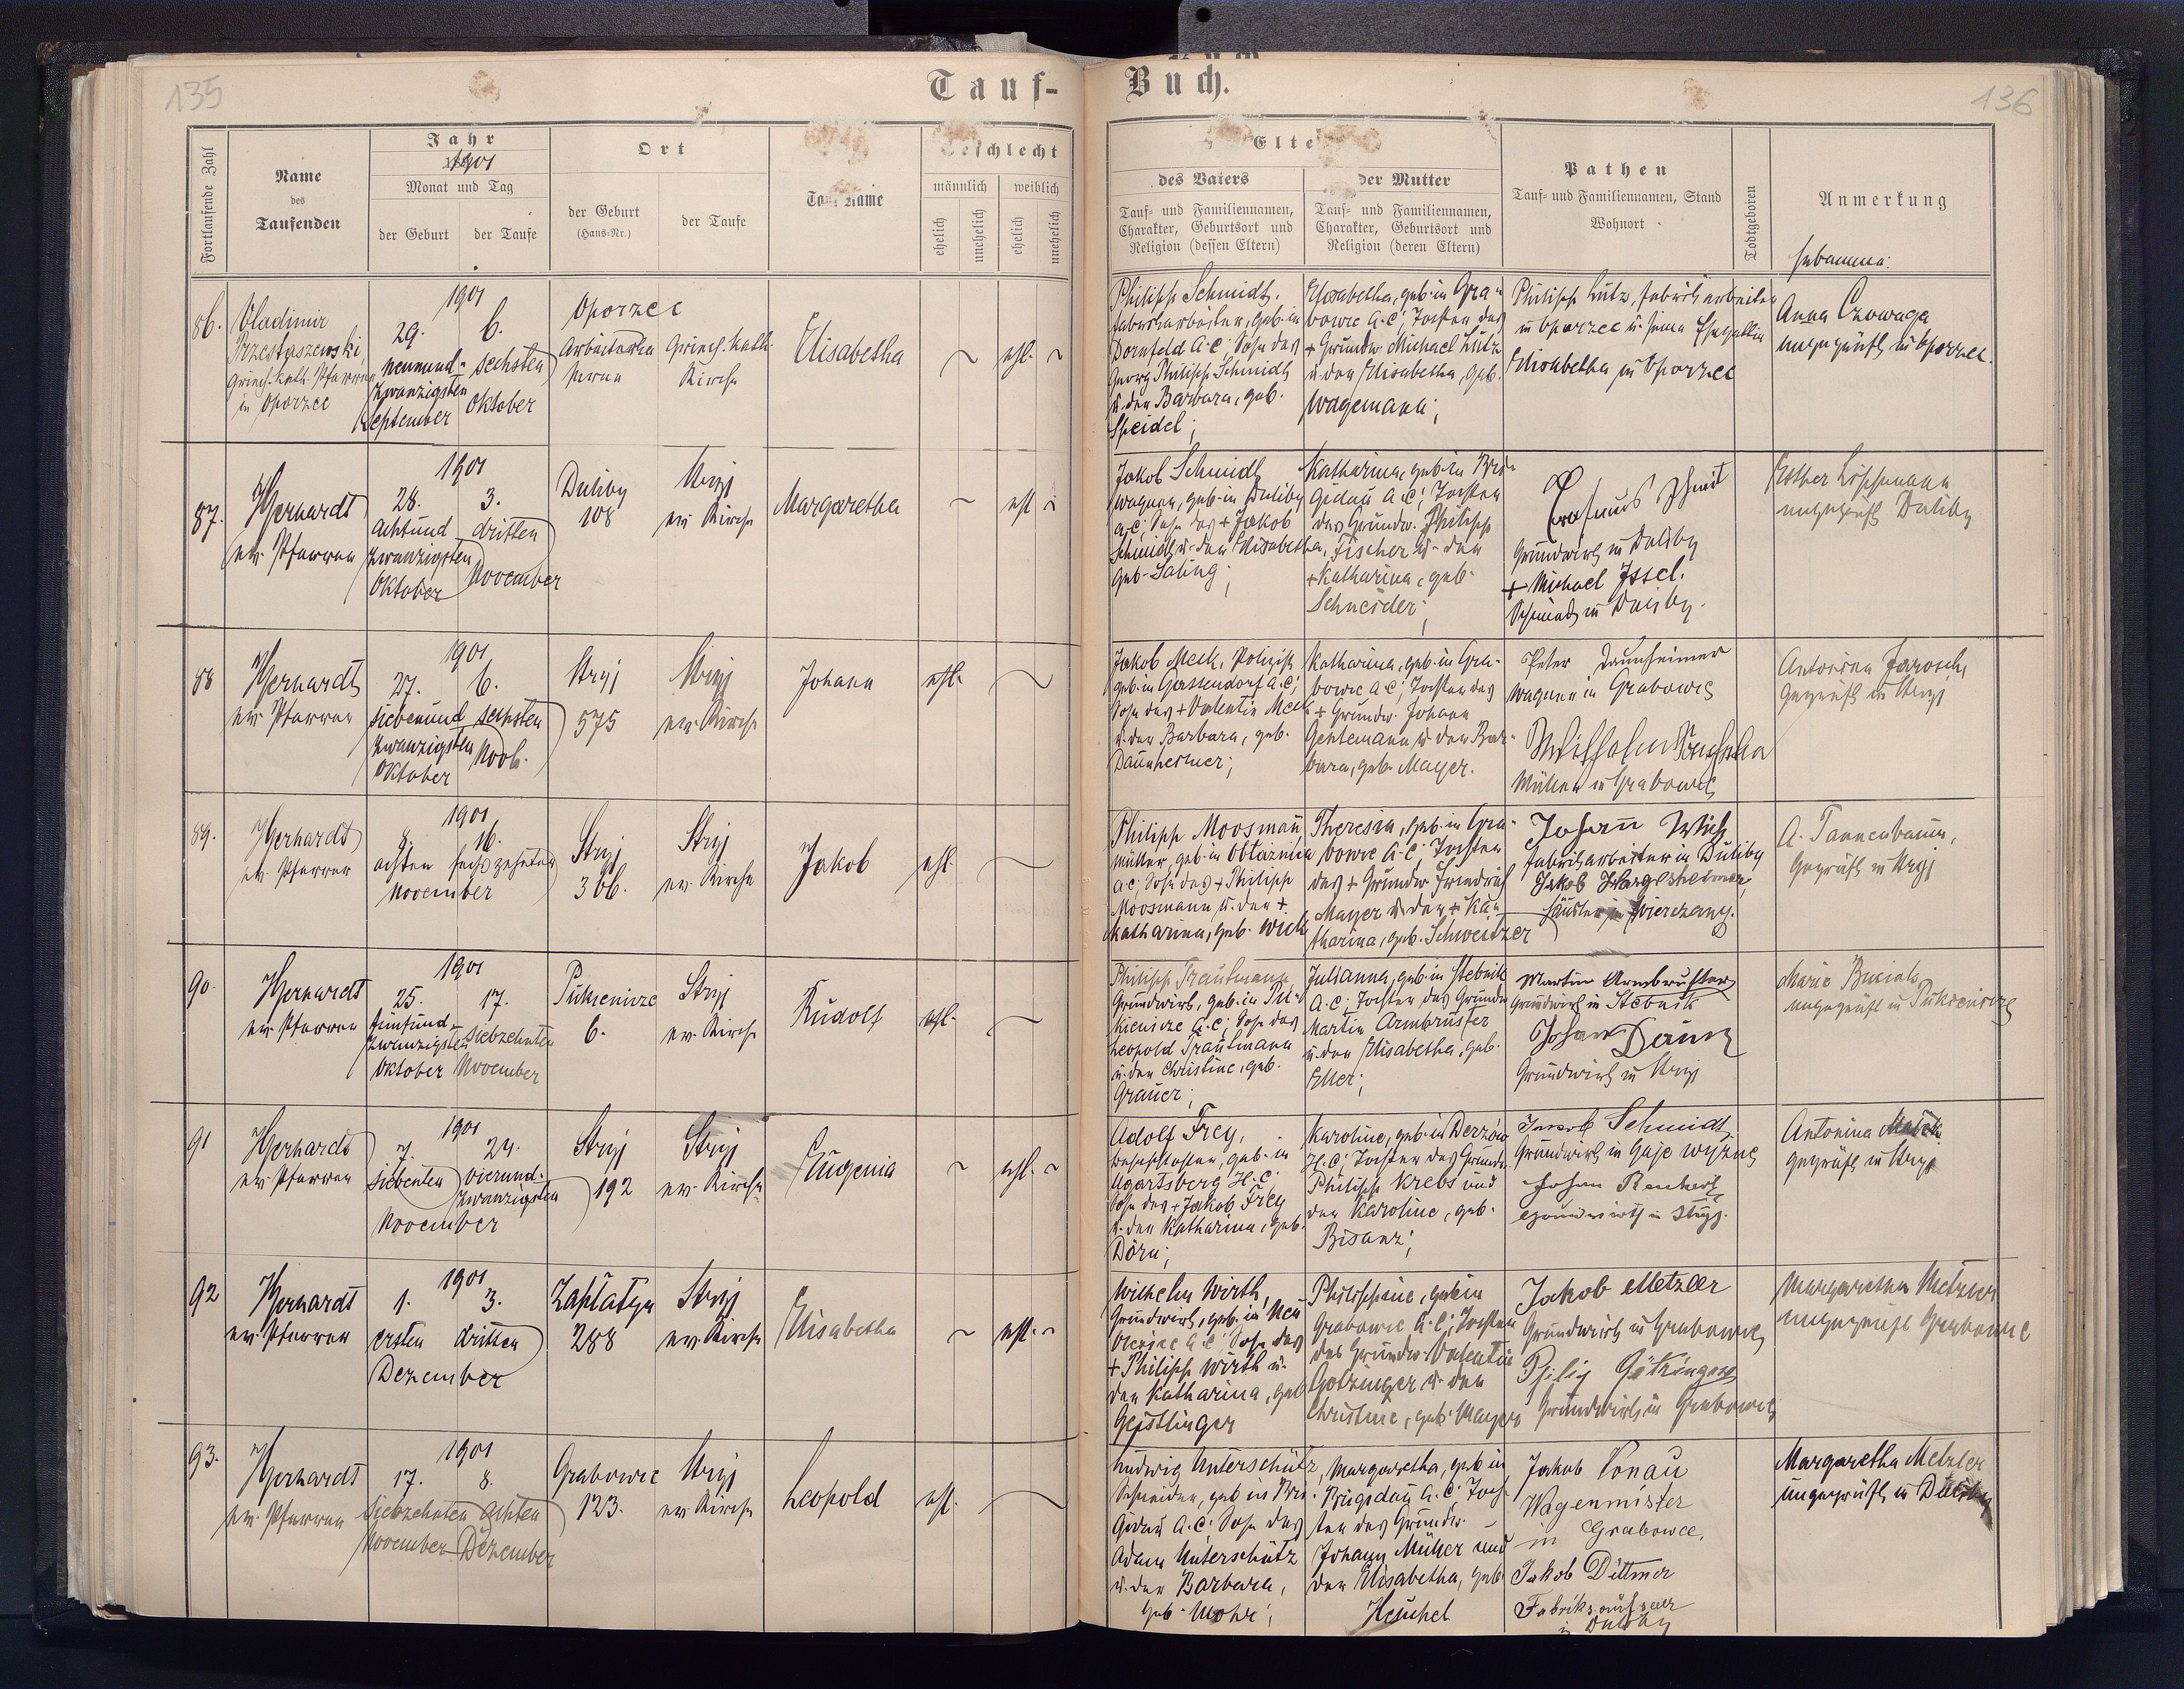 135
136
Tauf-
Buch.
Fortlaufende Zahl
Name
des
Taufenden
Jahr
1901
Monat und Tag
der Geburt
der Taufe
Ort
der Geburt
(Haus-Nr.)
der Taufe
Geschlecht
männlich
weiblich
ehelich
unehelich
ehelich
unehelich
des Vaters
Tauf- und Familiennamen,
Charakter, Geburtsort und
Religion (dessen Eltern)
der Mutter
Tauf- und Familiennamen,
Charakter, Geburtsort und
Religion (deren Eltern)
Pathen
Tauf- und Familiennamen, Stand
Wohnort
Todtgeboren
Anmerkung
Hebamme:
86.
Vladimir
Przestaszewski,
griech. kath. Pfarrer
in Oporzec
1901
29. 6.
neunund- sechsten
zwanzigsten
September Oktober
Oporzec
griech. kath.
Kirche
Elisabetha
ehl.
Philipp Schmidt,
Fabriksarbeiter, geb. in
Dornfeld A.C; Sohn des
Georg Philipp Schmidt
u. der Barbara, geb.
Speidel;
Elisabetha, geb. in Gra-
bowce A.C; Tochter des
+ Grundw. Michael Lutz
u. der Elisabetha, geb.
Wagemann;
Philipp Lutz, Fabriksarbeiter
in Oporzec u. seine Ehegattin
Elisabetha in Oporzec
Anna Czowaga
ungeprüft in Oporzec.
87.
Gerhardt
ev. Pfarrer
1901
28. 3.
achtund dritten
zwanzigsten
Oktober November
Duliby
108
Stryj
ev. Kirche
Margaretha
ehl
Jakob Schmidt
Wagner, geb. in Duliby
A.C; Sohn des + Jakob
Schmidt u. der Elisabetha,
geb. Saling;
Katharina, geb. in Bri-
gidau A.C; Tochter
des Grundw. Philipp
Fischer u. der
+ Katharina, geb.
Schneider;
Grundwirth in Duliby
+ Michael Issel.
Schmied in Duliby.
Esther Lippmann
ungeprüft Duliby
88
Gerhardt
ev. Pfarrer
1901
27. 6.
siebenund sechsten
zwanzigsten
Oktober Novb.
Stryj
575
Stryj
ev. Kirche
Johann
ehl.
Jakob Meck, Polizist
geb. in Gerssendorf A.C;
Sohn des + Valentin Meck
u. der Barbara, geb.
Daunheimer;
Katharina, geb. in Gra-
bowce A.C; Tochter des
+ Grundw. Johann
Gentemann u. der Bar-
bara, geb. Mayer.
Peter Daunheimer
Wagner in Grabowce
Wilhelm
Müller in Grabowce
Antonina Jarosch,
geprüft in Stryj
89.
Gerhardt
ev. Pfarrer
1901
8. 16.
achten sechszehnten
November
Stryj
366.
Stryj
ev. Kirche
Jakob
ehl.
Philipp Moosmann,
Müller, geb. in Oblaznica
A.C; Sohn des + Philipp
Moosmann u. der +
Katharina, geb. Wich
Theresia, geb. in Gra-
bowce A.C; Tochter
des + Grundw. Friedrich
Mayer u. der + Ka-
tharina, geb. Schweitzer
Johann Wich
Fabriksarbeiter in Duliby
Jakob Hargesheimer,
Häusler in Wierczany.
A. Tannenbaum,
geprüft in Stryj
90.
Gerhardt
ev. Pfarrer
1901
25. 17.
fünfund- siebzehnten
zwanzigsten
Oktober November
Pukienicze
6.
Stryj
ev. Kirche
Rudolf
ehl.
Philipp Trautmann
Grundwirth, geb. in Pu-
kienicze A.C; Sohn des
Leopold Trautmann
u. der Christine, geb.
Grauer;
Julianna, geb. in Stebnik
A.C; Tochter des Grundw
Martin Armbruster
u. der Elisabetha, geb.
Eller;
Martin Armbruster
Grundwirth in Stebnik
Johann Daum
Grundwirth in Stryj
Marie
ungeprüft in Pukienicze
91
Gerhardt
ev. Pfarrer
1901
7. 24.
siebenten vierund-
zwanzigsten
November
Stryj
192
Stryj
ev. Kirche
Eugenia
ehl.
Adolf Frey,
geb. in
Ugartsberg H.C;
Sohn des + Jakob Frey
u. der Katharina, geb.
Dörn;
Karoline, geb. in Derzów
H.C; Tochter des Grundw.
Philipp Krebs und
der Karoline, geb.
Bisanz;
Jakob Schmidt
Grundwirth in Gaje wyżne
Johan
Grundwirth in Stryj.
Antonina
geprüft in Stryj
92
Gerhardt
ev. Pfarrer
1901
1. 3.
ersten dritten
Dezember
Zaplatyn
288
Stryj
ev. Kirche
Elisabetha
ehl.
Wilhelm Wirth,
Grundwirth, geb. in Neu
Olexice A.C; Sohn des
+ Philipp Wirth u.
der Katharina, geb
Geistlinger
Philippine, geb. in
Grabowce A.C; Tochter
des Grundw. Valentin
Götzinger u. der
Christine, geb. Mayer
Jakob Metzler
Grundwirth in Grabowce
Philip Götzinger
Grundwirth in Grabowce
Margaretha Metzler
ungeprüft Grabowce
93.
Gerhardt
ev. Pfarrer
1901
17. 8.
siebzehnten achten
November Dezember
Grabowce
123.
Stryj
ev. Kirche
Leopold
ehl.
Ludwig Unterschütz,
Schneider, geb. in Bri-
gidau A.C; Sohn des
Adam Unterschütz
u. der Barbara,
geb. Mohr;
Margaretha, geb. in
Brigidau A.C; Toch-
ter des Grundw.
Johann Müller und
der Elisabetha, geb.
Heuchel
Jakob Vonau
Wagenmister
in Grabowce,
Jakob Dittmer
Fabriksaufseer
in Duliby
Margaretha Metzler
ungeprüft in Duliby